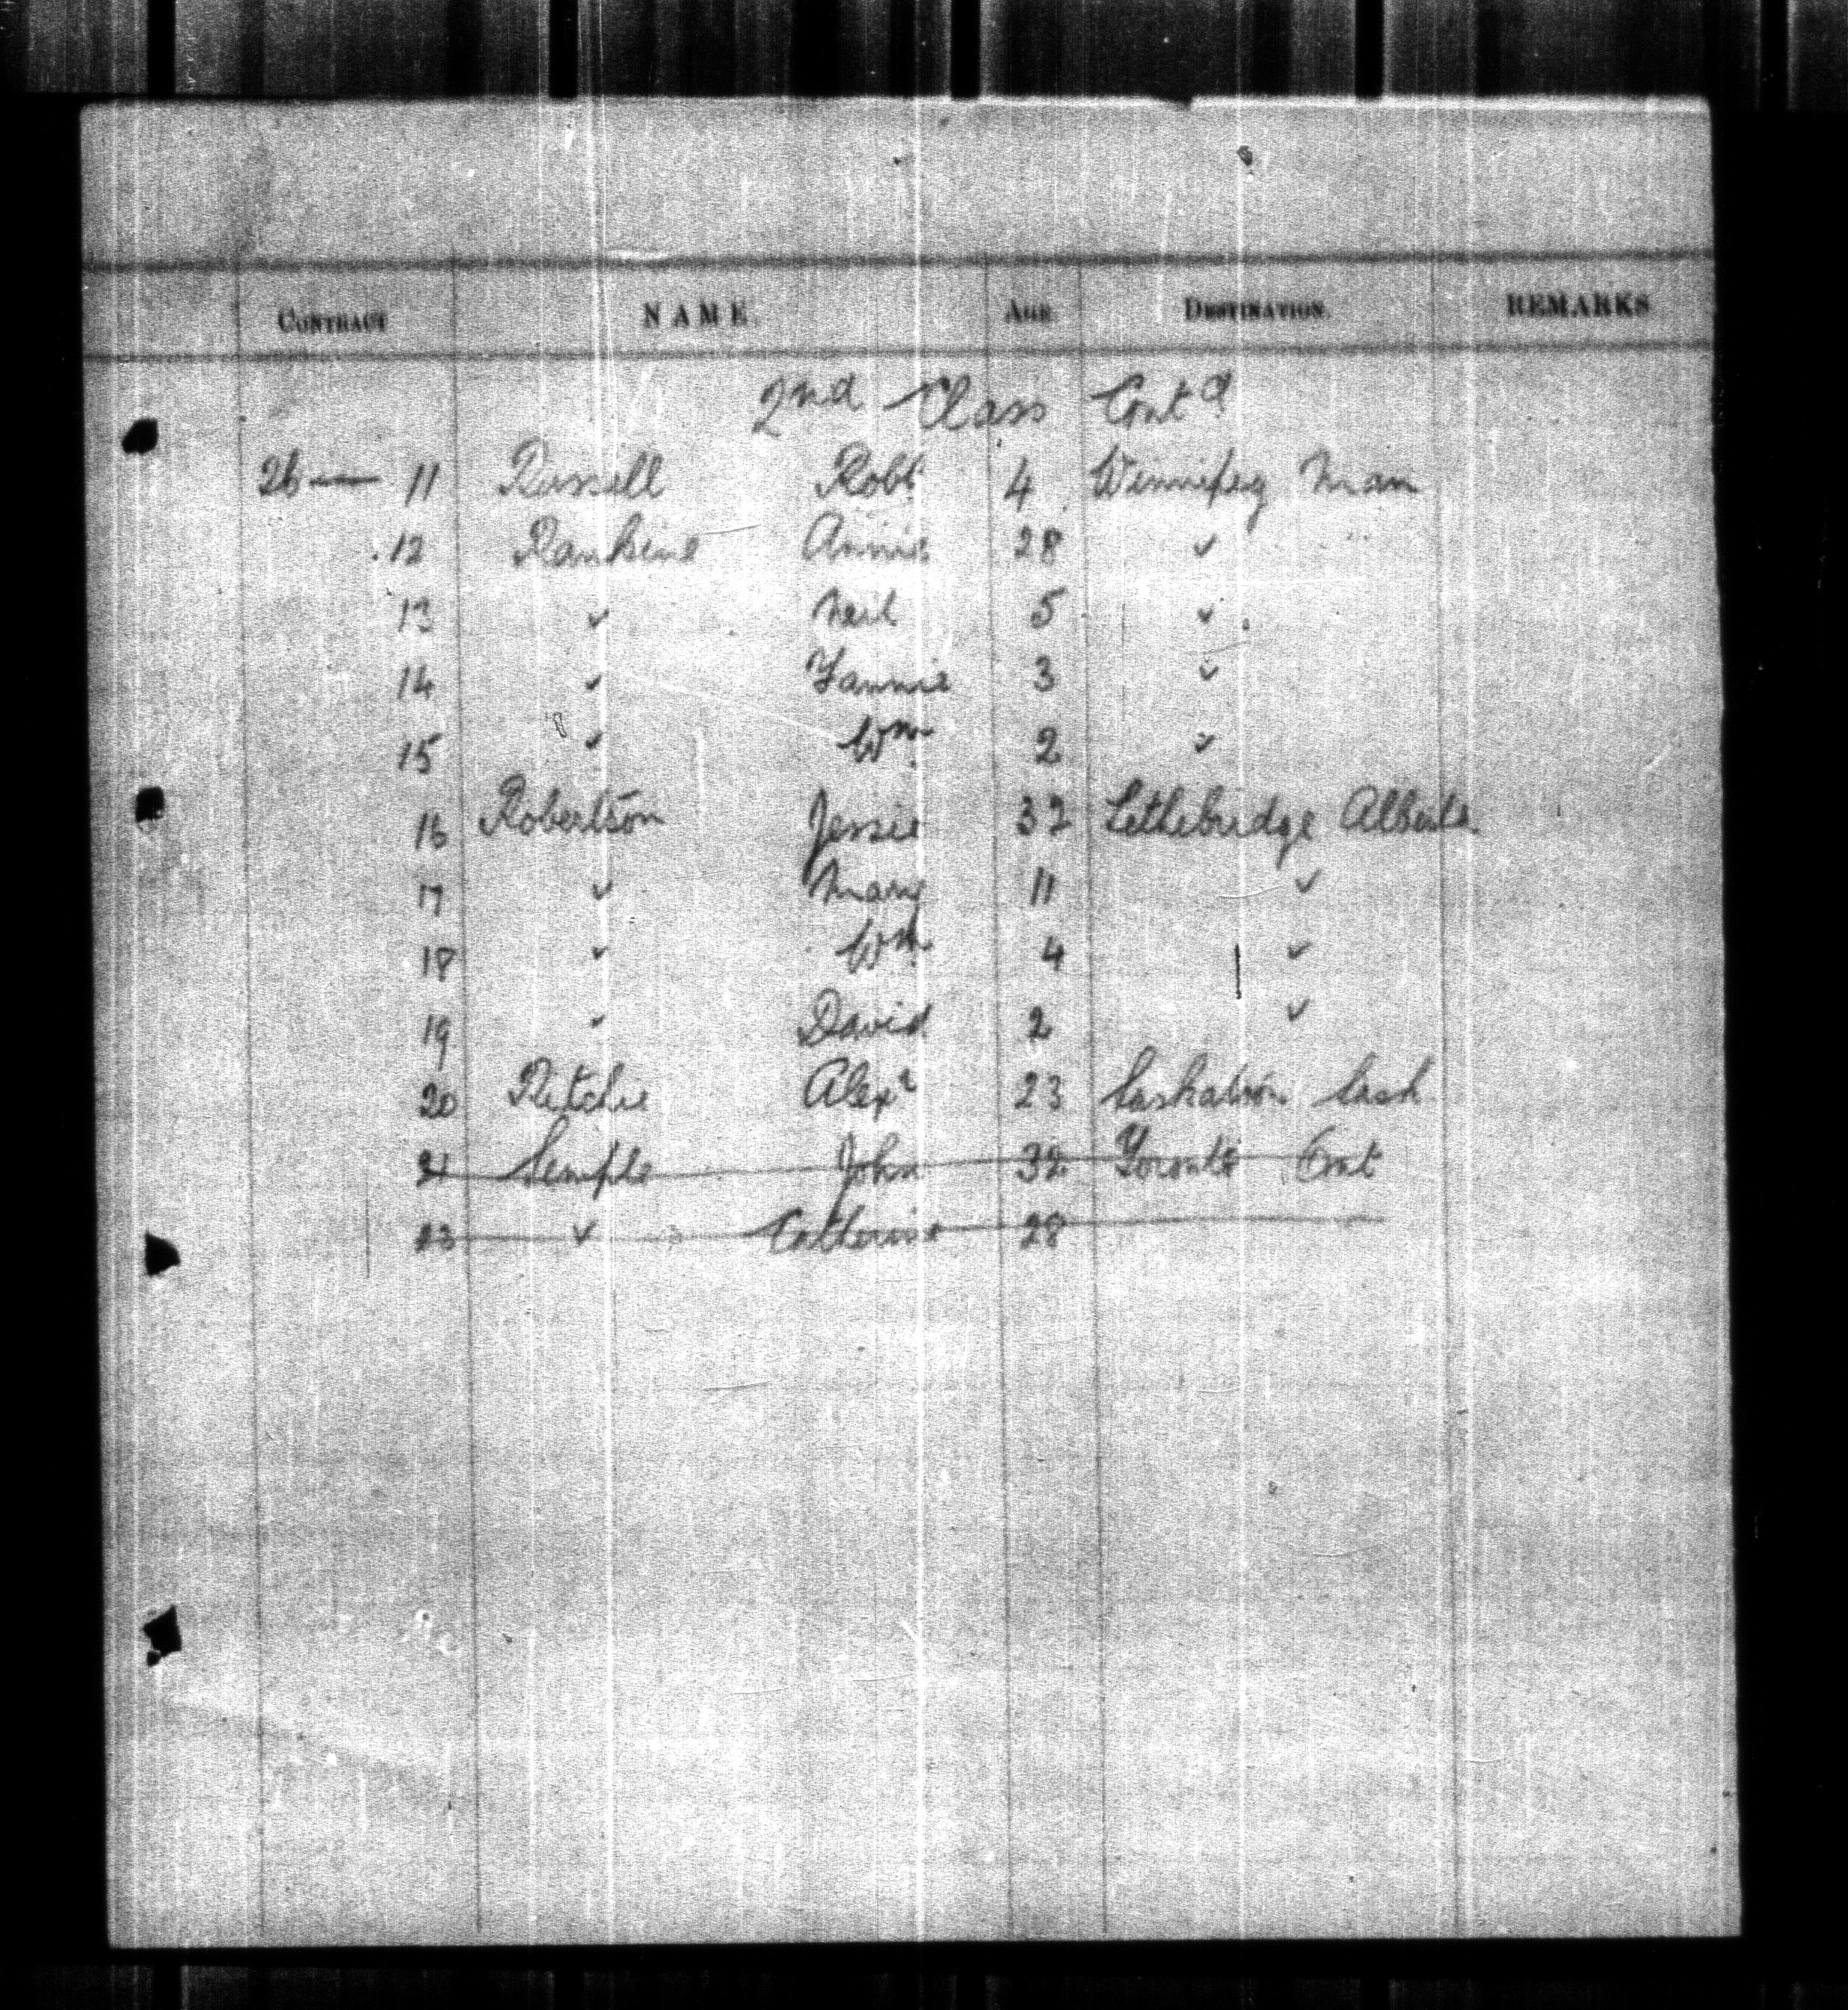 CONTRACT NAME. AGE DESTINATION. REMARKS
2nd Class Contd
26 — 11 Russell Robt 4 Winnipeg Man
12 Rankine Annie 28 ✓
13 ✓ Neil 5 ✓
14 ✓ Fannie 3 ✓
15 ✓ Wm 2 ✓
16 Robertson Jessie 32 Lethebridge Alberta.
17 ✓ Mary 11 ✓
18 ✓ Wm 4 ✓
19 ✓ David 2 ✓
20 Ritchie Alexr 23 Saskatoon Sask
21 Semple John 32 Toronto Ont
23 ✓ Catherine 28